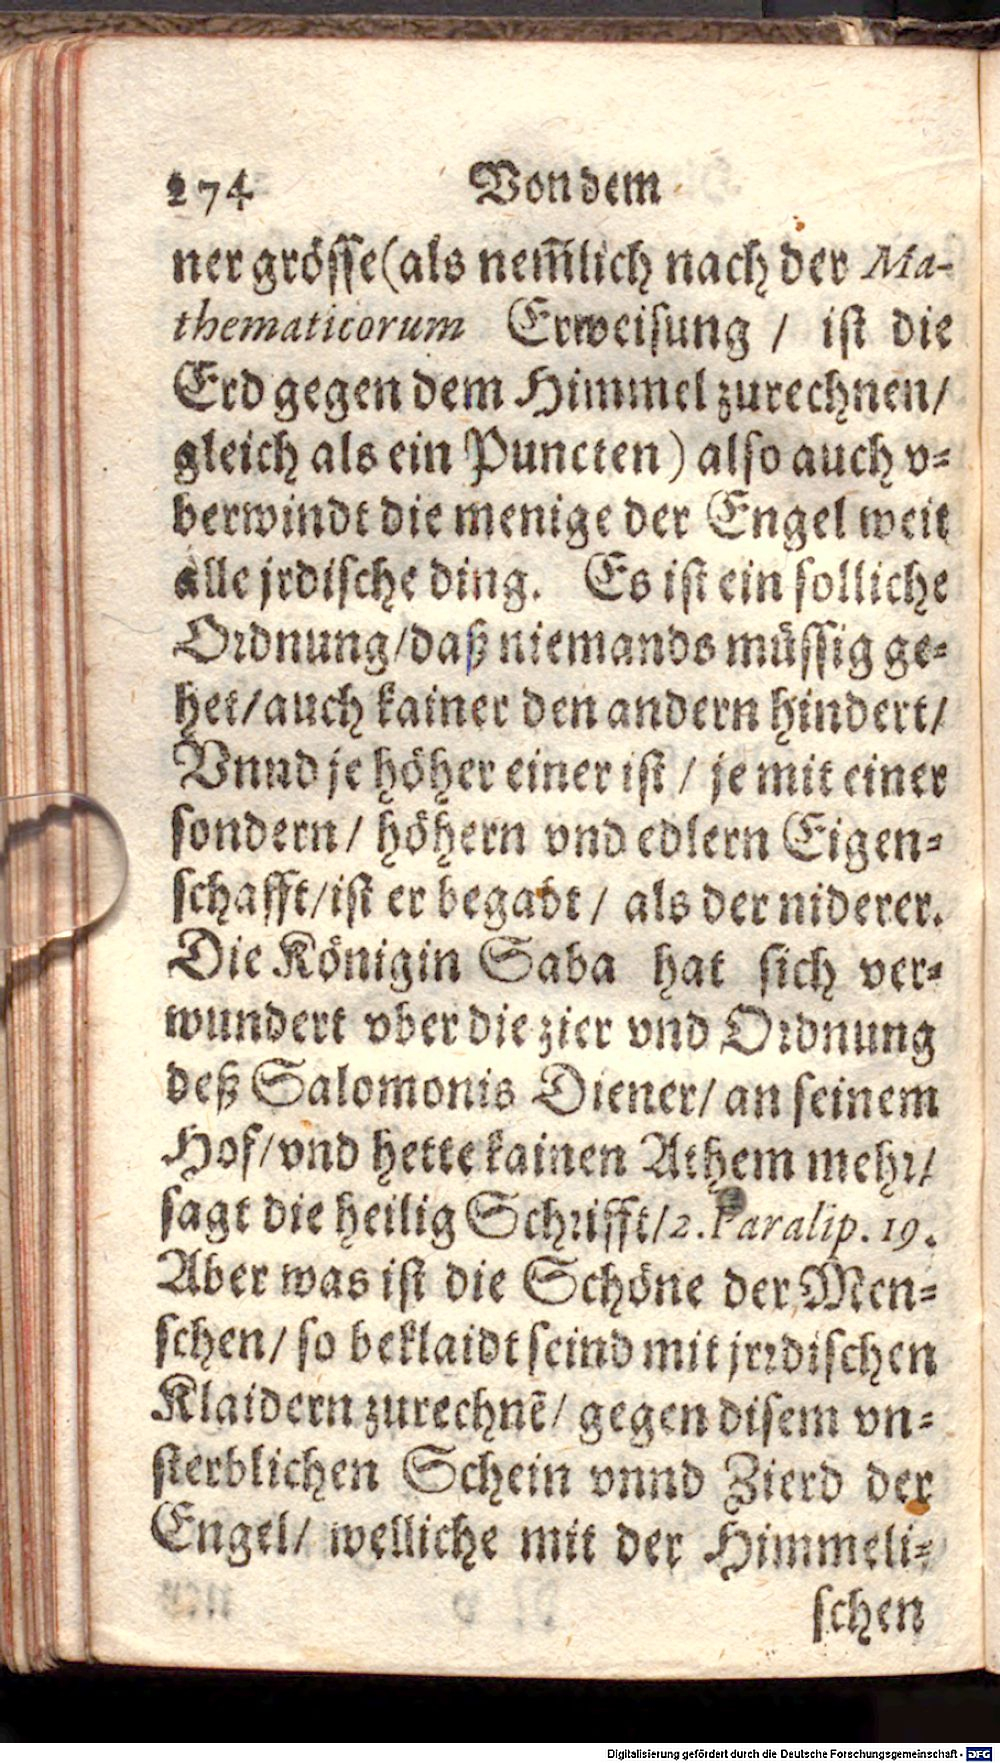 274 Von dem
ner grösse (als nem̃lich nach der Ma-
thematicorum Erweisung / ist die
Erd gegen dem Himmel zurechnen/
gleich als ein Puncten) also auch v-
berwindt die menige der Engel weit
alle jrdische ding. Es ist ein solliche
Ordnung/daß niemands müssig ge-
het/auch kainer den andern hindert/
Vnnd je höher einer ist / je mit einer
sondern/ höhern vnd edlern Eigen-
schafft/ist er begabt / als der niderer.
Die Königin Saba hat sich ver-
wundert vber die zier vnd Ordnung
deß Salomonis Diener/ an seinem
Hof/vnd hette kainen Athem mehr/
sagt die heilig Schrifft/2. Paralip. 19.
Aber was ist die Schöne der Men-
schen/ so beklaidt seind mit jrrdischen
Klaidern zurechnẽ/ gegen disem vn-
sterblichen Schein vnnd Zierd der
Engel/ welliche mit der Himmeli-
schen
Digitalisierung gefördert durch die Deutsche Forschungsgemeinschaft - DFG